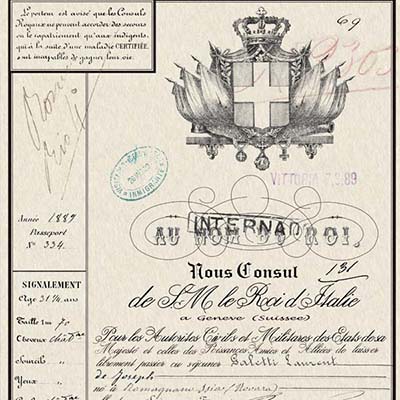 Le porteur est avisé que les Consuls
Royaux ne peuvent accorder des secours
ou le rapatriement qu'aux indigents,
qui à la suite d'une maladie CERTIFIÉE,
sont incapables de gagner leur vie.
69
VITTORIA
89
Année 1889
Passeport
N° 334.
INTERNAC
AU NOM DU ROI.
Nous Consul
131
de S.M. le Roi d'Italie
a Genève (Suissee)
SIGNALEMENT
Age 31 ½ ans
Taille 1m 70
Cheveux
Sourcils
Yeux
Pour les Autorites Civils et Militaires des Etats de sa
Majesté et celles des Puissances Amies et Alliées de laisser
librement passer ou séjourner Galetti Laurent
de Joseph
né à Romagnano Sesia (Novara)